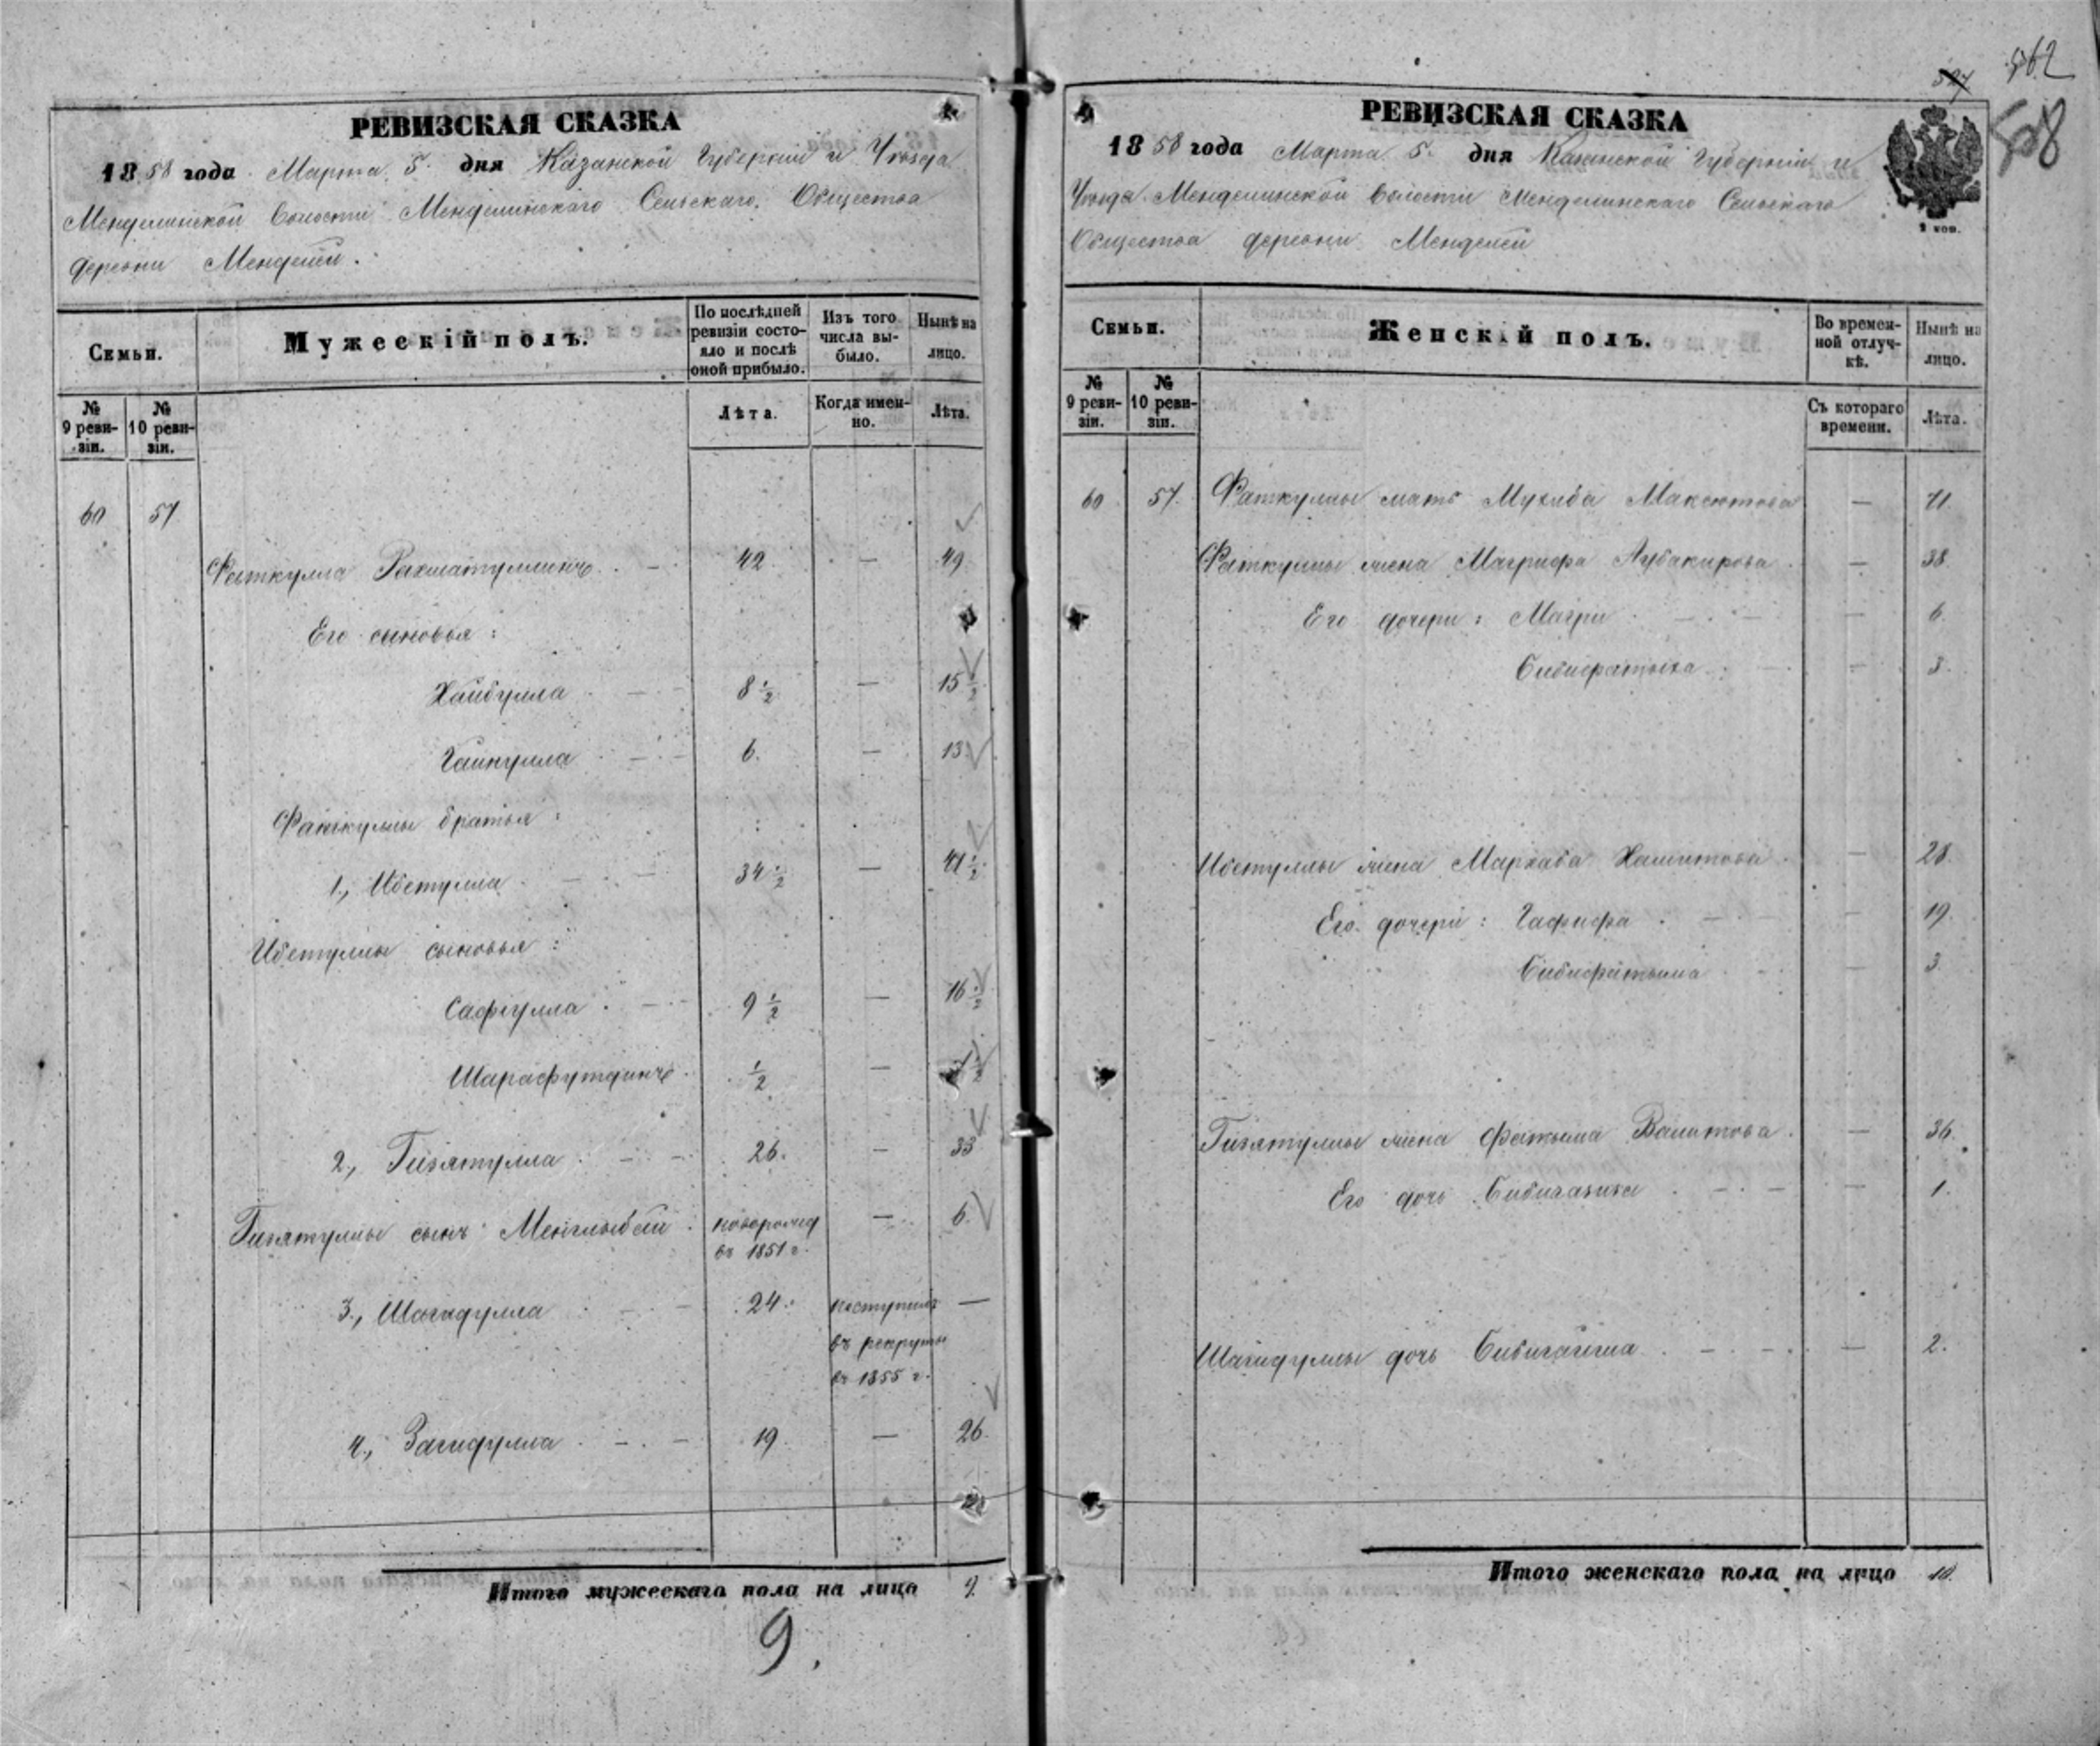 562
527
508
РЕВИЗСКАЯ СКАЗКА
1858 года Марта 5. дня Казанской Губернии и Уѣзда
Менделинской Волости Менделинскаго Сельскаго Общества
деревни Менделей.
Семьи.
Мужескій полъ.
По послѣдней
ревизіи состо-
яло и послѣ
оной прибыло.
Изъ того
числа вы-
было.
Нынѣ на
лицо.
№
9 реви-
зіи.
№
10 реви-
зіи.
Лѣта.
Когда имен-
но.
Лѣта.
60 57
Фаткулла Рахматуллинъ 42 — 49
Его сыновья:
Хайбулла 8 1/2 — 15 1/2
Гайнулла 6. — 13
Фаткуллы братья:
1., Ибетулла 34 1/2 — 41 1/2
Ибетуллы сыновья:
Сафіулла 9 1/2 — 16 1/2
Шарафутдинъ 1/2 — 7 1/2
2., Гизятулла 26. — 33
Гизятуллы сынъ Менглыбай новорожд — 6.
въ 1851 г.
3., Шагидулла 24. поступилъ —
въ рекруты
въ 1855 г.
4., Загидулла 19 — 26.
Итого мужескаго пола на лицо 9.
9.
РЕВИЗСКАЯ СКАЗКА
1858 года Марта 5. дня Казанской Губерніи и
Уѣзда Менделинской Волости Менделинскаго Сельскаго
Общества деревни Менделей
2 коп.
Семьи.
Женскій полъ.
Во времен-
ной отлуч-
кѣ.
Нынѣ на
лицо.
№
9 реви-
зіи.
№
10 реви-
зіи.
Съ котораго
времени.
Лѣта.
60 57. Фаткуллы мать Мухиба Максютова — 71.
Фаткуллы жена Магрифа Аубакирова — 38
Его дочери: Магри — 6
Бибифатыха — 3.
Ибетуллы жена Мархаба Хамитова — 28.
Его дочери: Гафифа — 19.
Бибифатыма — 3
Гизятуллы жена Фатыма Валитова — 36.
Его дочь Бибигазиза — 1.
Шагидуллы дочь Бибигайша — 2.
Итого женскаго пола на лицо 10.